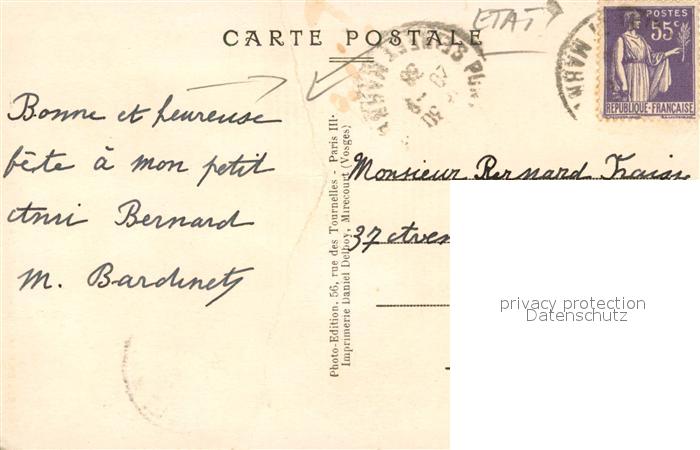 ETAT
CARTE POSTALE
POSTES
55c
RÉPUBLIQUE-FRANÇAISE
Bonne et heureuse
fête à mon petit
Ami Bernard
M. Bardinet
Photo-Edition, 56, rue des Tournelles - Paris III.
Imprimerie Daniel Delboy, Mirecourt (Vosges)
Monsieur Bernard
37 Aven
privacy protection
Datenschutz